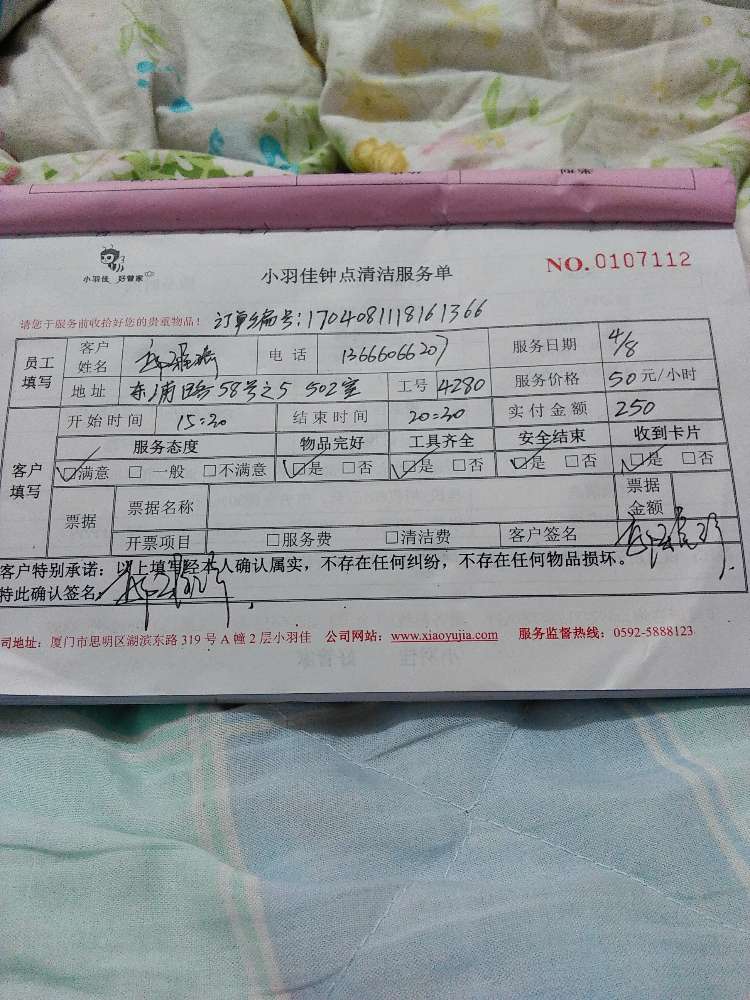 小羽佳 好管家
小羽佳钟点清洁服务单
NO. 0107112
请您于服务前收拾好您的贵重物品!
订单编号:1704081118161366
员工填写 客户姓名 电话 13666066207 服务日期 4/8
地址 东浦路58号之5 502室 工号 4280 服务价格 50元/小时
客户填写 开始时间 15:30 结束时间 20:30 实付金额 250
服务态度 物品完好 工具齐全 安全结束 收到卡片
☑满意 □一般 □不满意 ☑是 □否 ☑是 □否 ☑是 □否 ☑是 □否
票据 票据名称 票据金额
开票项目 □服务费 □清洁费 客户签名
客户特别承诺:以上填写经本人确认属实,不存在任何纠纷,不存在任何物品损坏。
特此确认签名
司地址:厦门市思明区湖滨东路319号A幢2层小羽佳 公司网站:www.xiaoyujia.com 服务监督热线:0592-5888123